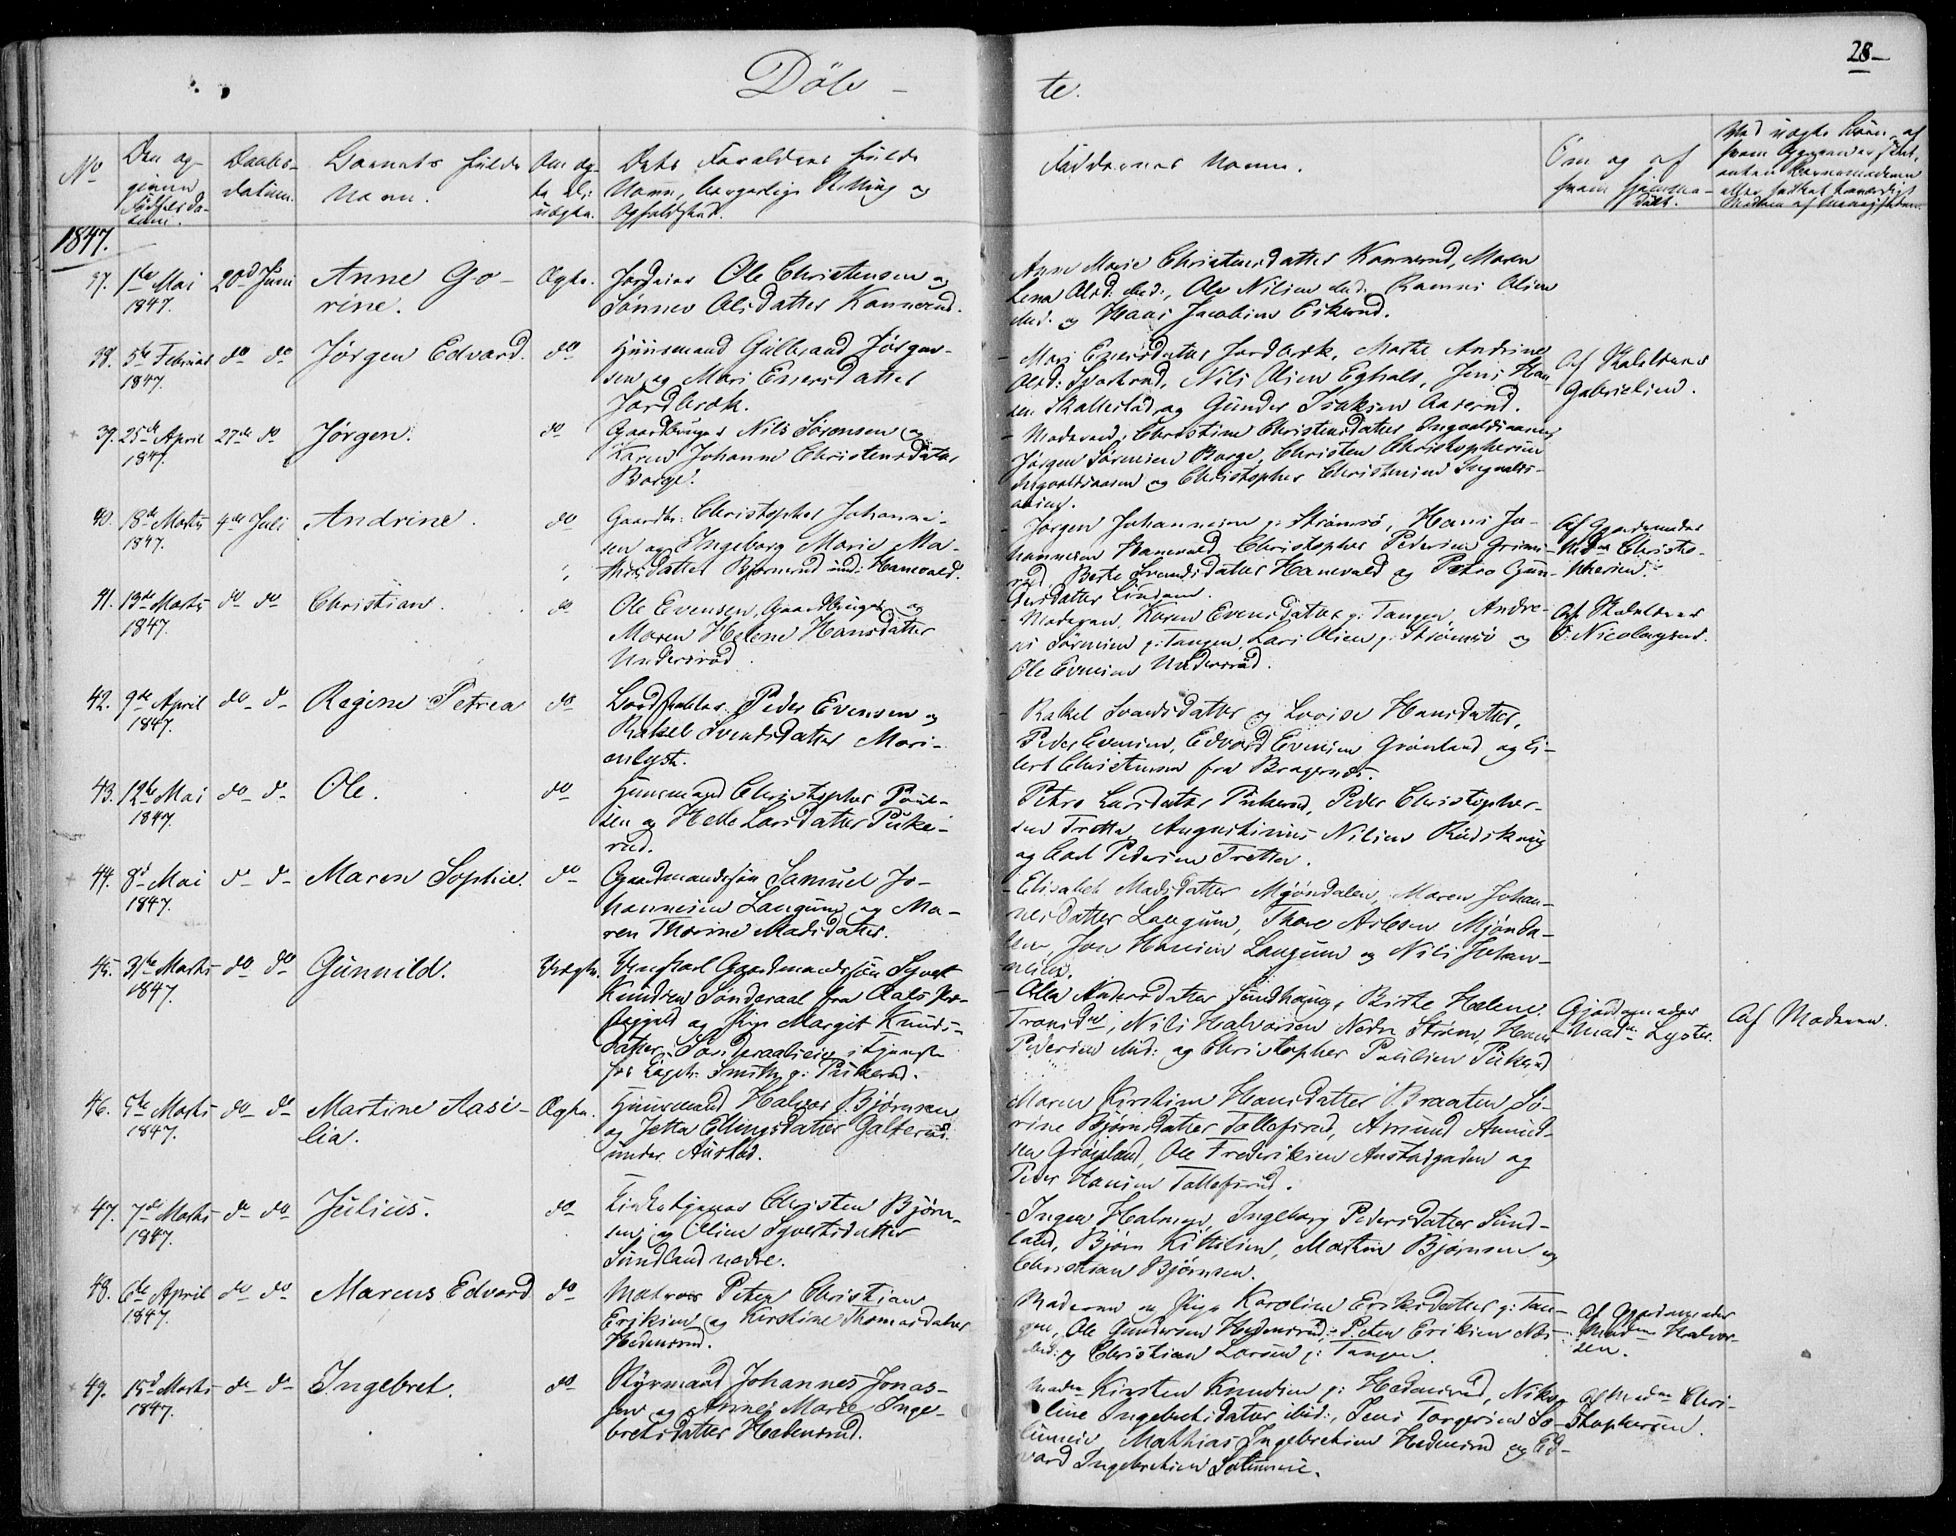 28
Döb- te.
No
Den op-
givne
Fødsels Da-
tum.
Daabs-
datum.
Barnets fulde
Navn.
Om æg-
te el:
uægte.
Dets Forældres fulde
Navn, borgerlige Stilling og
Opholdsted.
Faddernes Navne.
Om og af
hvem hjemme-
døbt.
1847.
37. 1ste Mai 20d Juni Anne Go- Ægte. Ole Christensen og
1847. rine. Olsdatter Konnerud.
Anne Marie Christensdatter Konnerud, Maren
Lena Olsd. ibid:, Ole Nilsen ibid: Olsen
ibid. og Hans Jacobsen Eskerud.
38. 5te Februar do do Jørgen Edvard. do Huusmand Gulbrand Jørgen-
1847. sen og Mari Enersdatter
Jordbræk.
Mari Enersdatter Jordbræk, Marthe Andrine
Olsd: Nils Olsen Eghals, Jens Han-
sen Skallestad og Gunder Isaksen Aaserud.
Af
Gabrielsen.
39. 25de April 27de do Jørgen. do Gaardbruger Nils Sørensen og
1847. Karen Johanne Christensdatter
Borge.
Moderen, Christine Christensdatter Ingvaldsaasen,
Jørgen Sørensen Borge, Christen Christophersen
Ingvaldsaasen og Christopher Christensen Ingvalds-
aasen.
40. 18de Marts 4de Juli Andrine. do Gaardbr: Christopher Johanne-
1847. sen og Ingeborg Marie Ma-
thisdatter Bjørnerud und: Hanevold.
Jørgen Johannesen p: Strømsø, Hans Jo-
hannesen Hanevold Christopher Pedersen Grims-
rud, Berte Svendsdatter Hanevold og Petra Gun-
dersdatter Lindum.
Af Gjordemoder
Mdm Christo-
phersen.
41. 13de Marts do do Christian. do Ole Evensen, Gaardbruger og
1847. Maren Helene Hansdatter
Undersrud.
Moderen, Karen Evensdatter p: Tangen, Andre-
as Sørensen p: Tangen, Lars Olsen p: Strømsø og
Ole Evensen Undersrud.
Af
Nicolaysen.
42. 9de April do d- Regine Petrea do Peder Evensen og
1847. Rakel Svendsdatter Mari-
enlyst.
Rakel Svendsdatter og Lovise Hansdatter,
Peder Evensen, Edvard Evensen Grønland og Ei-
lert Christensen fra Bragernæs.
43. 12te Mai do d- Ole. do Huusmand Christopher Poul-
1847. sen og Helle Larsdatter Puke-
rud.
Petra Larsdatter Pukerud, Peder Christopher-
sen Tretten Augustinus Nilsen Rudskoug
og Carl Pedersen Tretten.
44. 8d Mai d- d- Maren Sophie. do Gaardmandssøn Samuel Jo-
1847. hannesen Langum og Ma-
ren Thorine Madsdatter.
Elisabeth Madsdatter Mjøndalen, Maren Johan-
nesdatter Langum, Thore Aslesen Mjønda-
len, Jon Hansen Langum og Nils Johan-
nesen.
45. 31te Marts do do Gunnild. Uægte. Ungkarl Gaardmandssøn Syvert
1847. Knudsen Sønderaal fra Aals Præ-
stegjeld og Pige Margit Knuds-
datter
for Smith p: Pukerud.
Olea Andersdatter Sundhaug, Birthe Helene
Nils Halvorsen Nedre Strøm, Hans
Pedersen ibid: og Christopher Poulsen Pukerud
Gjordemoder
Mdm Lyster.
Af Moderen.
46. 5te Marts do d- Martine Aase- Ægte. Huusmand Halvor Bjørnsen
1847. lia. og Jetta Ellingsdatter Galterud
under Austad.
Maren Kirstine Hansdatter Braaten Sø-
rine Bjørnsdatter Tollefsrud, Amund Amund-
sen Grøsland, Ole Frederiksen Austadgaden og
Peder Hansen Tollefsrud.
47. 7de Marts d- do Julius. do Christen Bjørn-
1847. sen og Oline Syvertsdatter
Sundland nedre.
Inger Halvorsd, Ingeborg Pedersdatter Sund-
land, Bjørn Kittilsen, Martin Bjørnsen og
Christian Bjørnsen.
48. 6te April do do Marcus Edvard do Matros Peter Christian
1847. Eriksen og Kirstine Thomasdatter
Hedensrud.
Moderen og Pige Karoline Eriksdatter p: Tan-
gen, Ole Gundersen Hedensrud, Peter Eriksen
ibid: og Christian Larsen p: Tangen.
af Gjordemoder
Madme Halvor-
sen.
49. 15d Marts d- d- Ingebret. do Styrmand Johannes Jonas-
1847. sen og Anne Marie Inge-
bretsdatter Hedensrud.
Madm Kirsten Knudsen p: Hedensrud, Niko-
line Ingebretsdatter ibid:, Jens Torgersen So-
lumseie Mathias Ingebretsen Hedensrud og Ed-
vard Ingebretsen Solumseie.
af Mdm Chri-
stophersen.